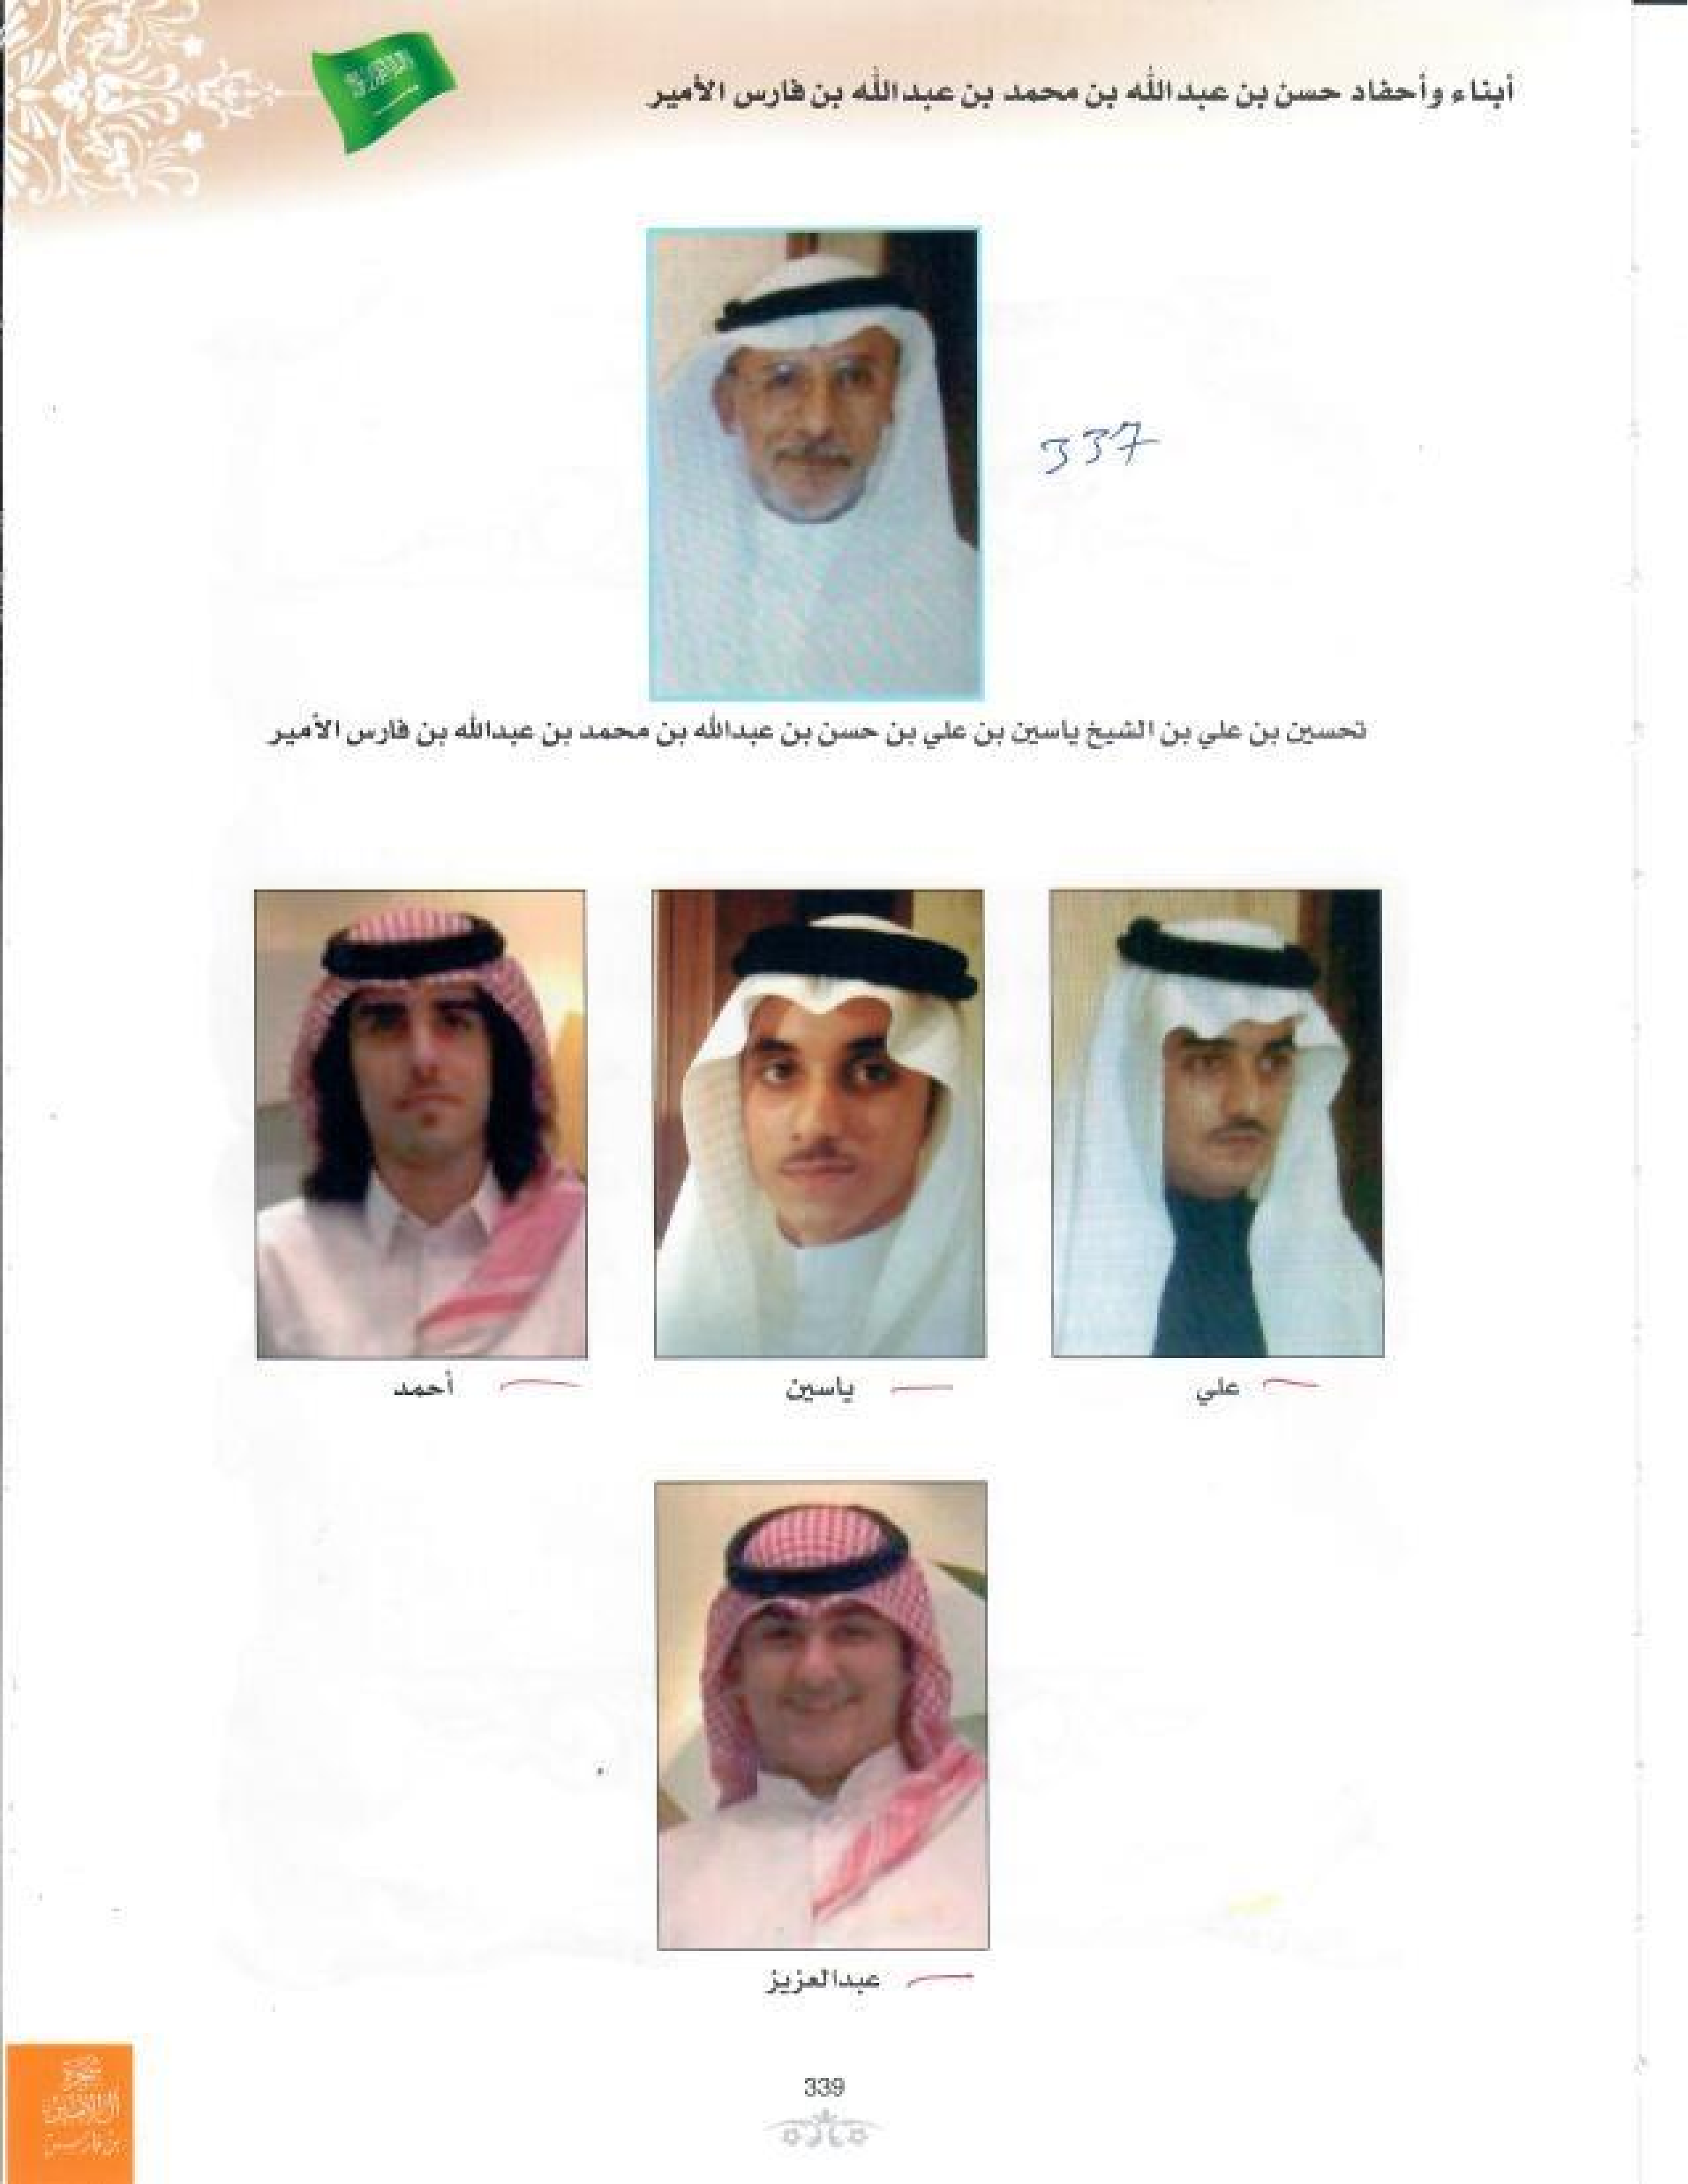 أبناء وأحفاد حسن بن عبدالله بن محمد بن عبدالله بن فارس الأمير
337
تحسين بن علي بن الشيخ ياسين بن علي بن حسن بن عبدالله بن محمد بن عبدالله بن فارس الأمير
علي
ياسين
أحمد
عبدالعزيز
339
بن فارس